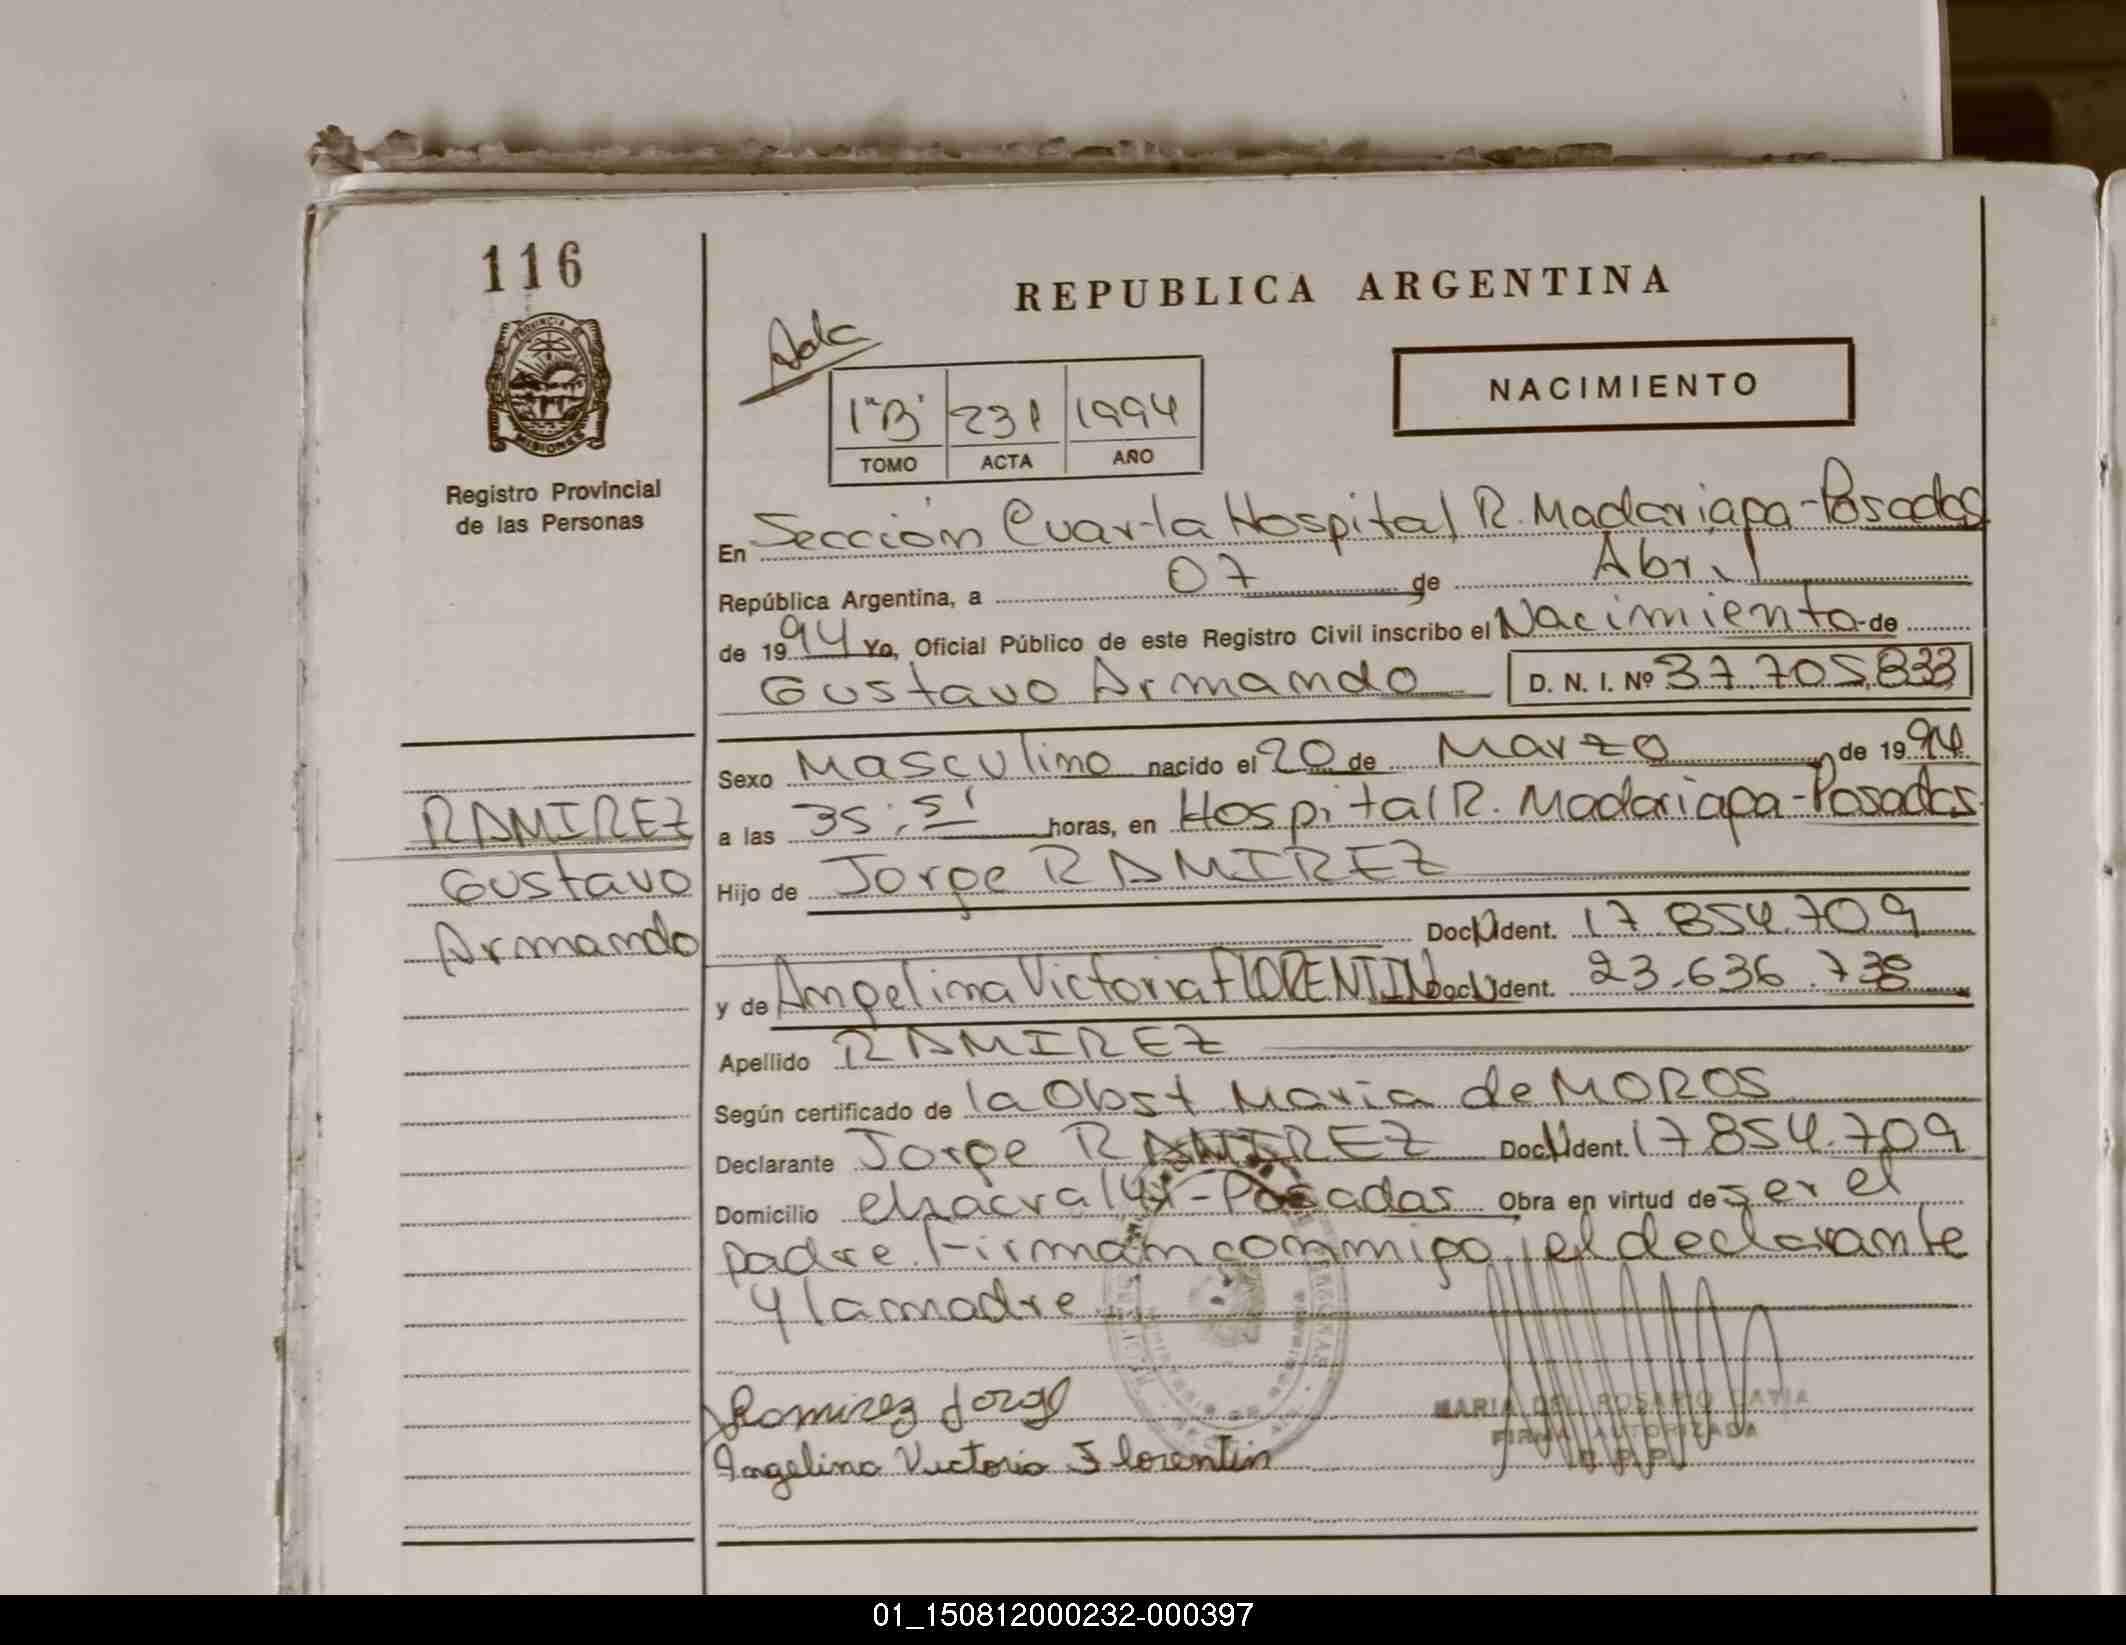 116
PROVINCIA DE
MISIONES
Registro Provincial
de las Personas
REPUBLICA ARGENTINA
NACIMIENTO
1"B" 231 1994
TOMO ACTA AÑO
En Sección Cuarta Hospital R. Madariaga-Posadas
República Argentina, a 07 de Abril
de 1994 Yo, Oficial Público de este Registro Civil inscribo el Nacimiento de
Gustavo Armando D. N. I. Nº 37.705.833
Sexo Masculino nacido el 20 de Marzo de 1994
a las horas, en Hospital R. Madariaga-Posadas
RAMIREZ
Gustavo
Armando
Hijo de Jorge RAMIREZ
Doc. Ident. 17.854.709
y de Angelina Victoria FLORENTIN Doc. Ident. 23.636.738
Apellido RAMIREZ
Según certificado de la Obst Maria de MOROS
Declarante Jorge RAMIREZ Doc. Ident. 17.854.709
Domicilio - Posadas Obra en virtud de ser el
padre. Firman conmigo, el declarante
y la madre
Ramirez Jorge
Angelina Victoria Florentin
MARIA DEL ROSARIO
FIRMA AUTORIZADA
01_150812000232-000397